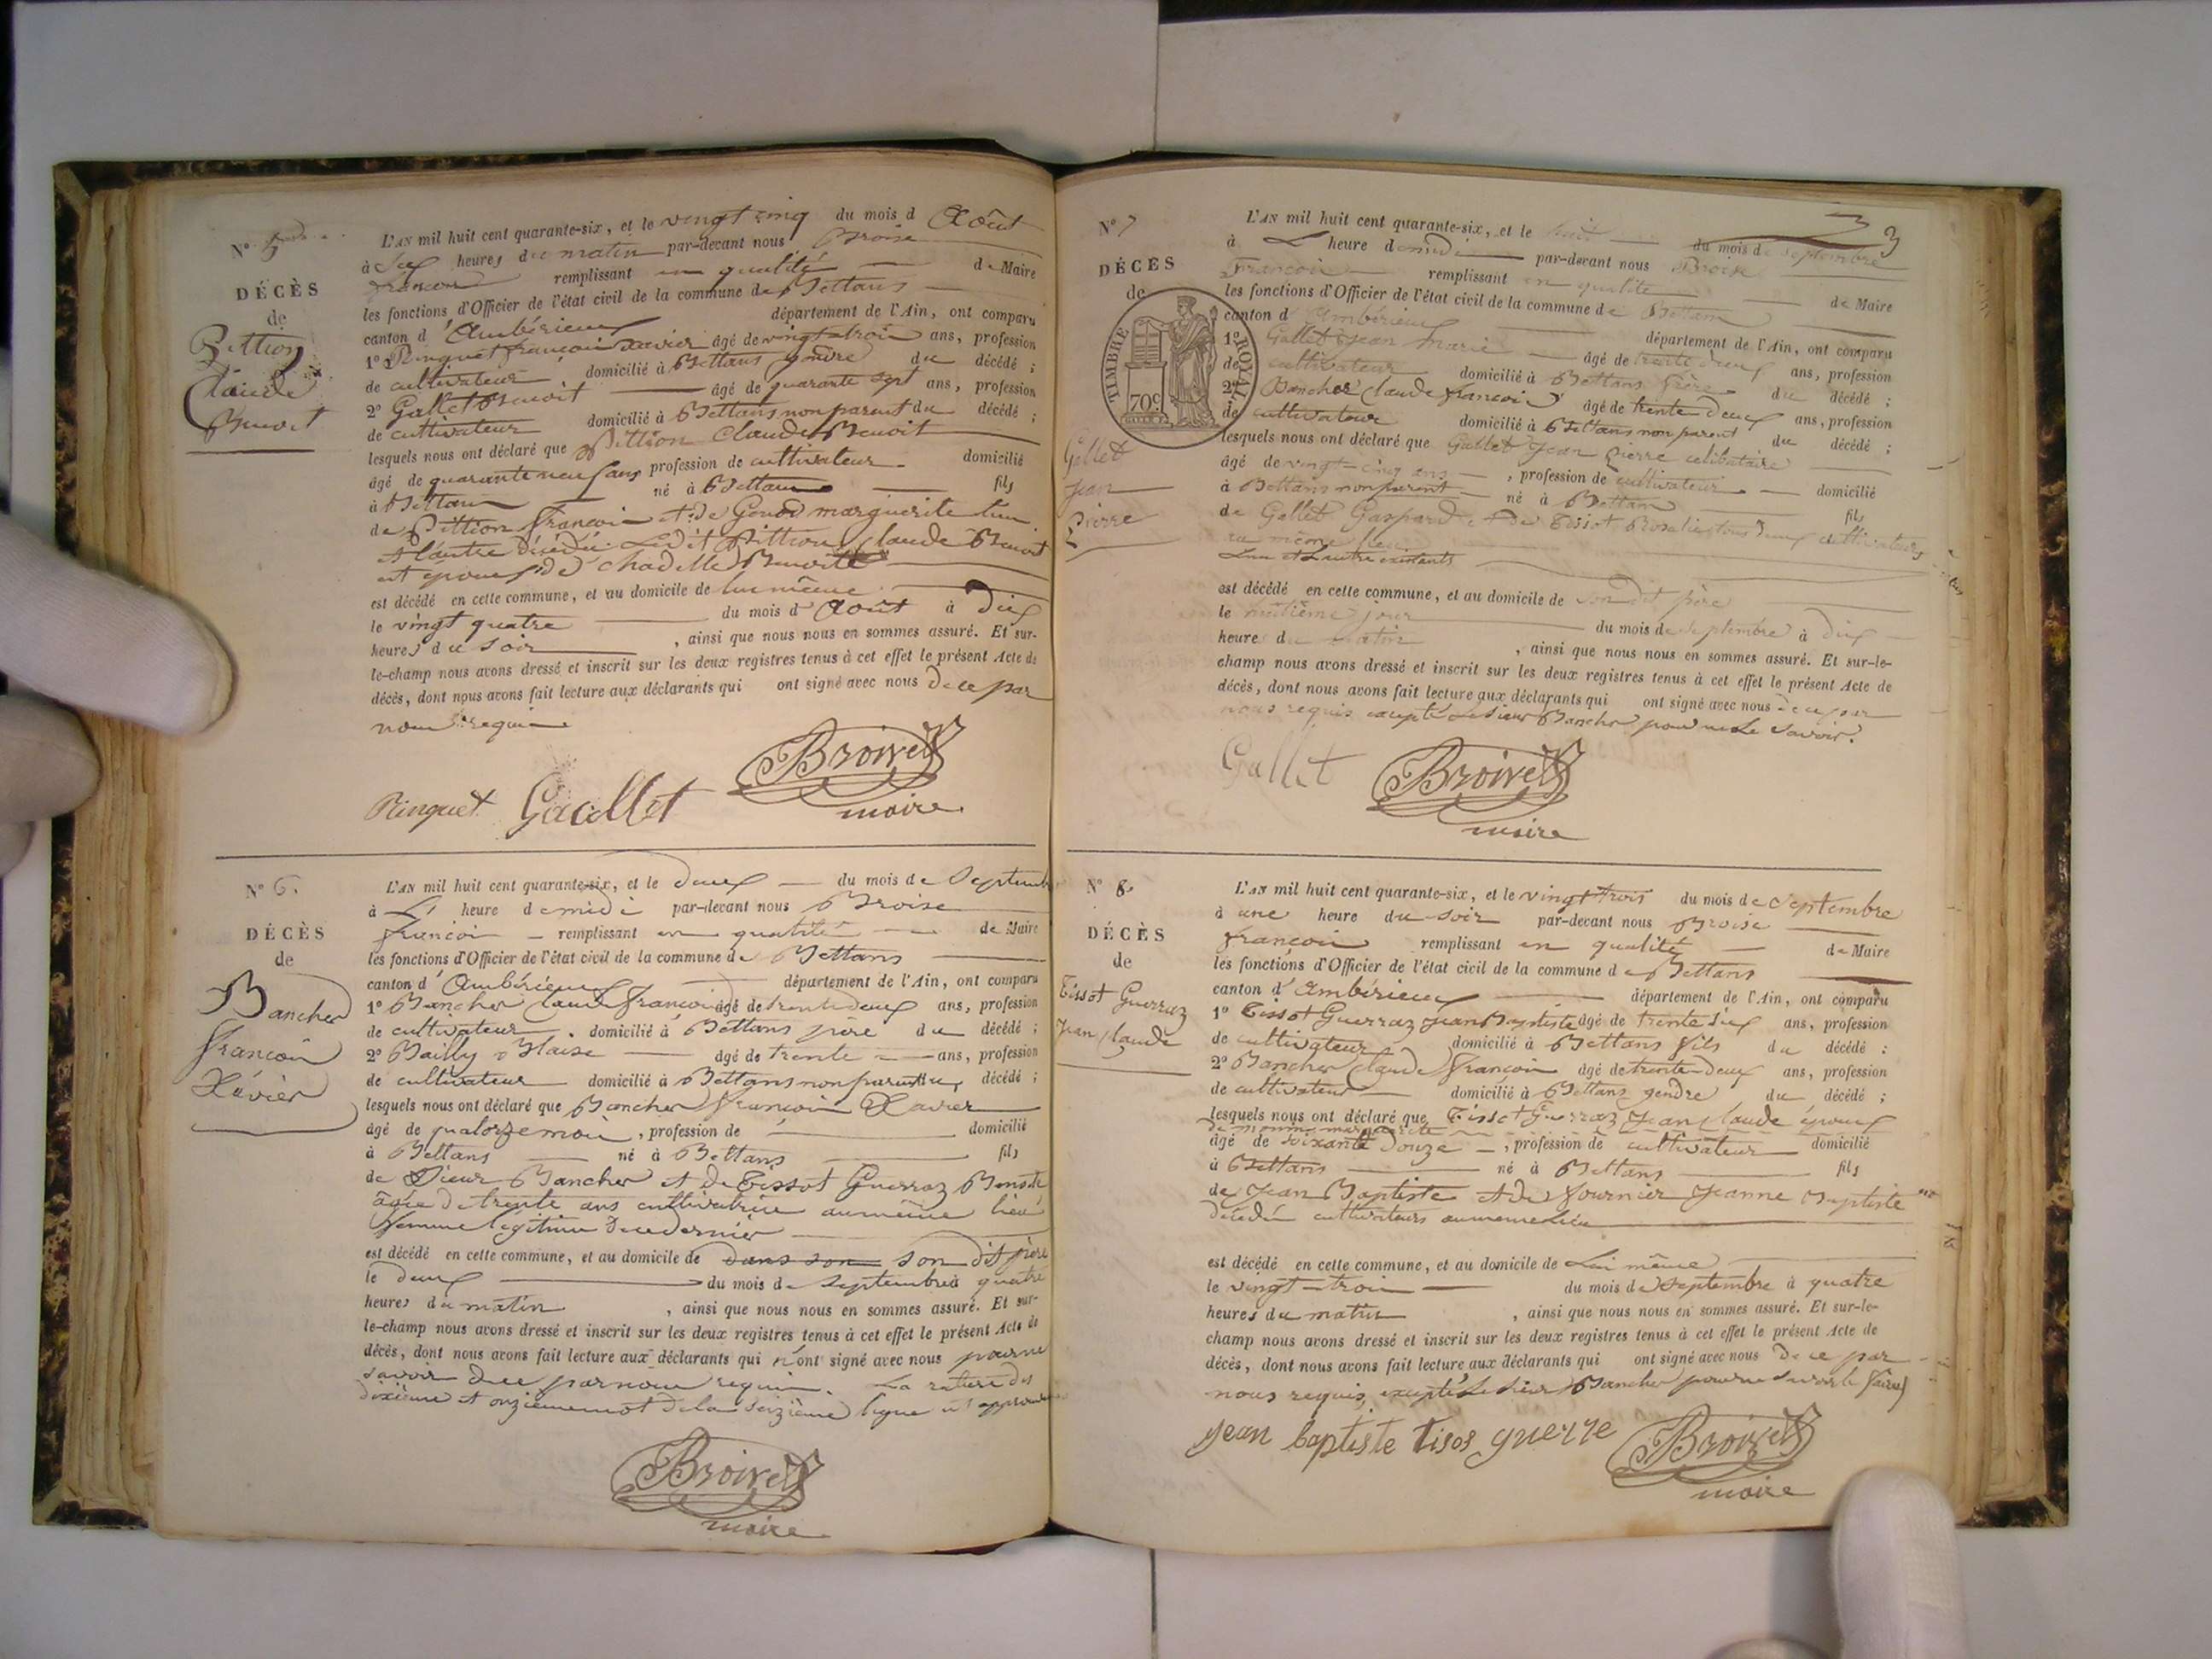 N° 5
DÉCÈS
de
Pittion
Claude
Benoit
L'AN mil huit cent quarante-six, et le vingt cinq du mois d Août
à six heures du matin par-devant nous Broise
françois remplissant en qualité de Maire
les fonctions d'Officier de l'état civil de la commune de Bettans
canton d'Ambérieux département de l'Ain, ont comparu
1° Ringuet françois Xavier âgé de vingt trois ans, profession
de cultivateur domicilié à Bettans gendre du décédé ;
2° Gallet Benoit âgé de quarante sept ans, profession
de cultivateur domicilié à Bettans non parent du décédé ;
lesquels nous ont déclaré que Pittion Claude Benoit
âgé de quarante neuf ans profession de cultivateur domicilié
à Bettans né à Bettans fils
de Pittion françois et de marguerite l'un
et l'autre décédés. Le dit Pittion Claude Benoit
est époux de Chadelle Benoite
est décédé en cette commune, et au domicile de lui même
le vingt quatre du mois d'Août à Dix
heures du soir, ainsi que nous nous en sommes assuré. Et sur-
le-champ nous avons dressé et inscrit sur les deux registres tenus à cet effet le présent Acte de
décès, dont nous avons fait lecture aux déclarants qui ont signé avec nous de ce par
nous requis
Ringuet Gallet Broise
maire
N° 6.
DÉCÈS
de
Bancher
françois
Xavier
L'AN mil huit cent quarante-six, et le deux du mois de Septembre
à L' heure de midi par-devant nous Broise
françois remplissant en qualité de Maire
les fonctions d'Officier de l'état civil de la commune de Bettans
canton d'Ambérieux département de l'Ain, ont comparu
1° Bancher Claude françois âgé de trente deux ans, profession
de cultivateur domicilié à Bettans père du décédé ;
2° Bailly Blaise âgé de trente ans, profession
de cultivateur domicilié à Bettans non parent du décédé ;
lesquels nous ont déclaré que Bancher françois Xavier
âgé de quatorze mois, profession de domicilié
à Bettans né à Bettans fils
de Sieur Bancher et de Tissot Guerraz Benoite
âgée de trente ans cultivatrice au même lieu
femme légitime de ce dernier
est décédé en cette commune, et au domicile de dans son son dit père
le deux du mois de septembre à quatre
heures du matin, ainsi que nous nous en sommes assuré. Et sur-
le-champ nous avons dressé et inscrit sur les deux registres tenus à cet effet le présent Acte de
décès, dont nous avons fait lecture aux déclarants qui n'ont signé avec nous pour ne
savoir de ce par nous requis. La rature des
dixième et onzième mot de la seizième ligne est approuvée
Broise
maire
3
N° 7
DÉCÈS
de
TIMBRE ROYAL
70c
Gallet
Jean
Pierre
L'AN mil huit cent quarante-six, et le huit du mois de septembre
à L' heure de midi par-devant nous Broise
françois remplissant en qualité de Maire
les fonctions d'Officier de l'état civil de la commune de Bettans
canton d'Ambérieux département de l'Ain, ont comparu
1° Gallet Jean Marie âgé de trente deux ans, profession
de cultivateur domicilié à Bettans frère du décédé ;
2° Bancher Claude françois âgé de trente deux ans, profession
de cultivateur domicilié à Bettans non parent du décédé ;
lesquels nous ont déclaré que Gallet Jean Pierre célibataire
âgé de vingt-cinq ans, profession de cultivateur domicilié
à Bettans non parent né à Bettans fils
de Gallet Gaspard et de Tissot Rosalie tous deux cultivateurs
au même lieu
L'un et L'autre existants
est décédé en cette commune, et au domicile de son dit père
le huitième jour du mois de septembre à dix
heure du matin, ainsi que nous nous en sommes assuré. Et sur-le-
champ nous avons dressé et inscrit sur les deux registres tenus à cet effet le présent Acte de
décès, dont nous avons fait lecture aux déclarants qui ont signé avec nous de ce par
nous requis excepté Le sieur Bancher pour ne Le savoir.
Gallet Broise
maire
N° 8.
DÉCÈS
de
Tissot Guerraz
Jean Claude
L'AN mil huit cent quarante-six, et le vingt trois du mois de Septembre
à une heure du soir par-devant nous Broise
françois remplissant en qualité de Maire
les fonctions d'Officier de l'état civil de la commune de Bettans
canton d'Ambérieux département de l'Ain, ont comparu
1° Tissot Guerraz Jean Baptiste âgé de trente six ans, profession
de cultivateur domicilié à Bettans fils du décédé :
2° Bancher Claude françois âgé de trente deux ans, profession
de cultivateur domicilié à Bettans gendre du décédé ;
lesquels nous ont déclaré que Tissot Guerraz Jean Claude époux
de marguerite
âgé de soixante Douze, profession de cultivateur domicilié
à Bettans né à Bettans fils
de Jean Baptiste et de fournier Jeanne Baptiste
décédés cultivateurs au meme Lieu
est décédé en cette commune, et au domicile de Lui même
le vingt-trois du mois de Septembre à quatre
heures du matin, ainsi que nous nous en sommes assuré. Et sur-le-
champ nous avons dressé et inscrit sur les deux registres tenus à cet effet le présent Acte de
décès, dont nous avons fait lecture aux déclarants qui ont signé avec nous De ce par
nous requis, excepté Le sieur Bancher pour ne savoir le faire
jean baptiste tisos guerre Broise
maire